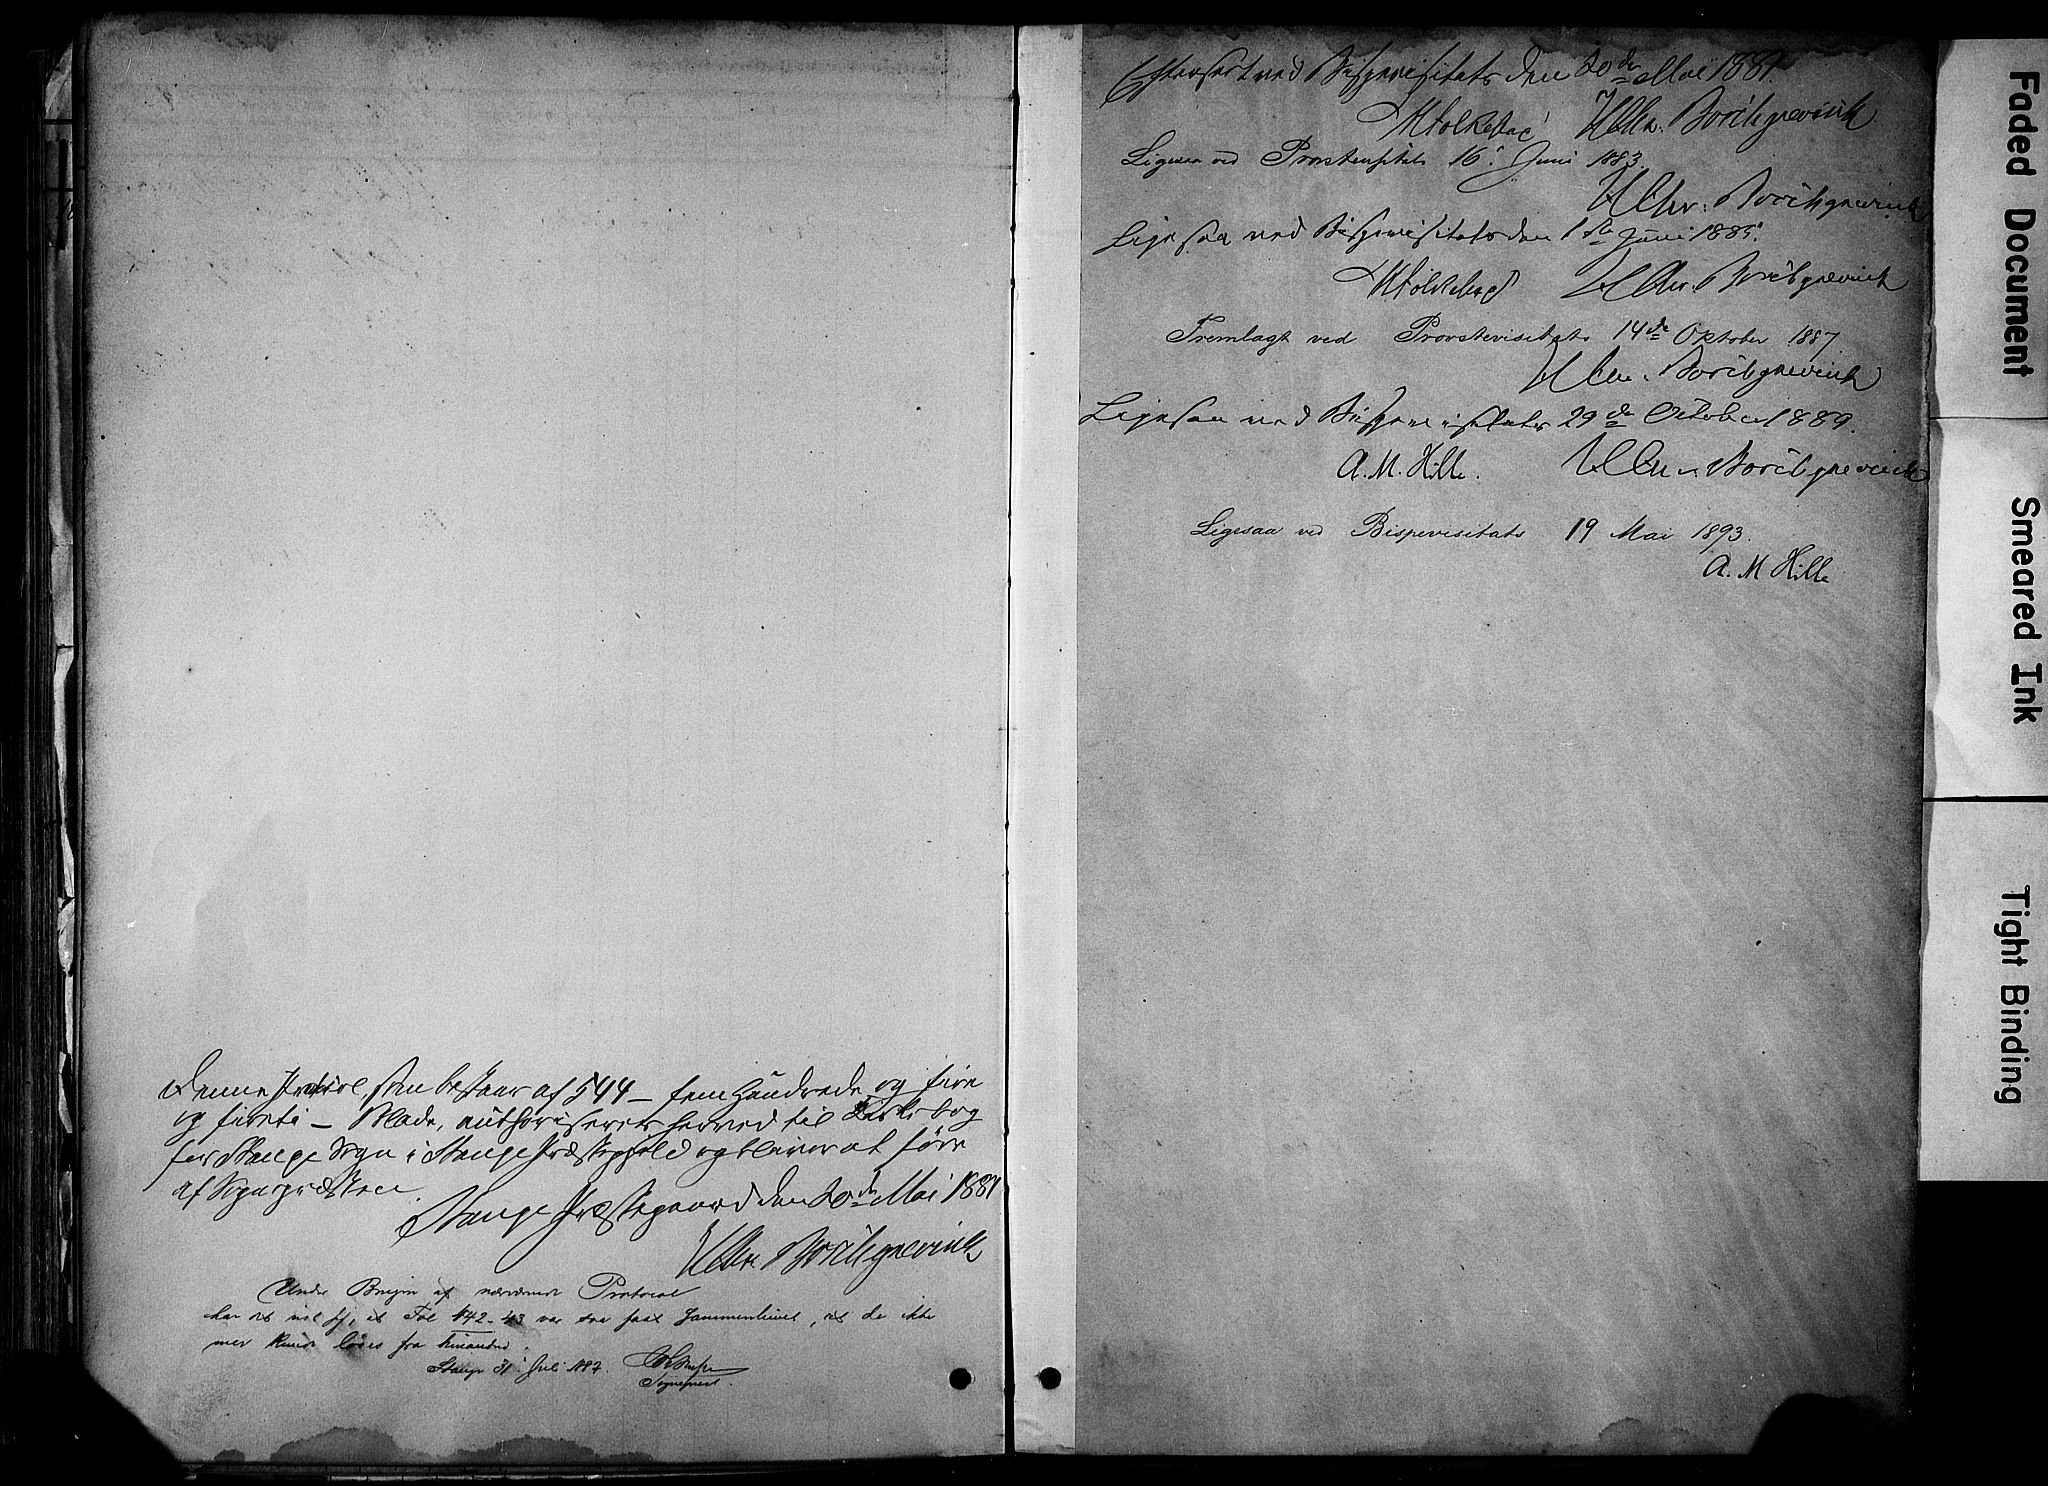 Denne Protocol, som bestaar af 544 – fem Hundrede og fire
og fireti – Blade, authoriseres herved til Kirkebog
for Stange Sogn i Stange Præstegjeld og bliver at føre
af Sognepræsten
Stange Præstegaard den 20de Mai 1881
H Chr. Borchgrevink
Under Brugen af nærværende Protocol
har det vist sig, at Fol 442-43 var saa fast sammenlimet, at de ikke
mer kunde løses fra hinanden.
Stange 31 Juli 1887
Sogneprest.
Efterseet ved Bispevisitats den 20de Mai 1881
H Chr. Borchgrevink
Ligesaa ved Provstevisitats 16. Juni 1883.
H Chr. Borchgrevink
Ligesaa ved Bispevisitats den 1ste Juni 1885.
H Chr. Borchgrevink
Fremlagt ved Provstevisitats 14de Oktober 1887
H Chr. Borchgrevink
Ligesaa ved Bispevisitats 29de October 1889.
A. M. Hille. H Chr. Borchgrevink
Ligesaa ved Bispevisitats 19 Mai 1893.
A. M Hille
Faded Document
Smeared Ink
Tight Binding